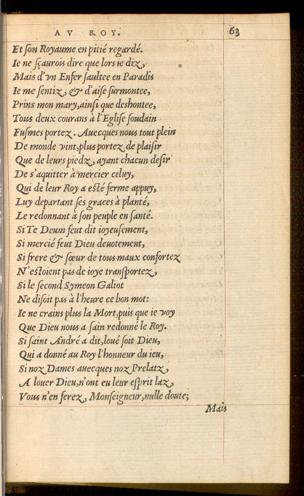 AV ROY. 63
Et son Royaume en pitié regardé.
Ie ne sçaurois dire que lors ie diz,
Mais d'vn Enfer saultee en Paradis
Ie me sentiz, & d'aise surmontee,
Prins mon mary, ainsi que deshontee,
Tous deux courans à l'Eglise soudain
Fusmes portez. Auecques nous tout plein
De monde vint, plus portez de plaisir
Que de leurs piedz, ayant chacun desir
De s'aquitter à mercier celuy,
Qui de leur Roy a esté ferme appuy,
Luy departant ses graces à planté,
Le redonnant à son peuple en santé.
Si Te Deum feut dit ioyeusement,
Si mercié feut Dieu deuotement,
Si frere & sœur de tous maux confortez
N'estoient pas de ioye transportez,
Si le second Symeon Galiot
Ne disoit pas à l'heure ce bon mot:
Ie ne crains plus la Mort, puis que ie voy
Que Dieu nous a sain redonné le Roy.
Si saint André a dit, loué soit Dieu,
Qui a donné au Roy l'honneur du ieu,
Si noz Dames auecques noz Prelatz,
A louer Dieu, n'ont eu leur esprit laz,
Vous n'en serez, Monseigneur, nulle doute;
Mais